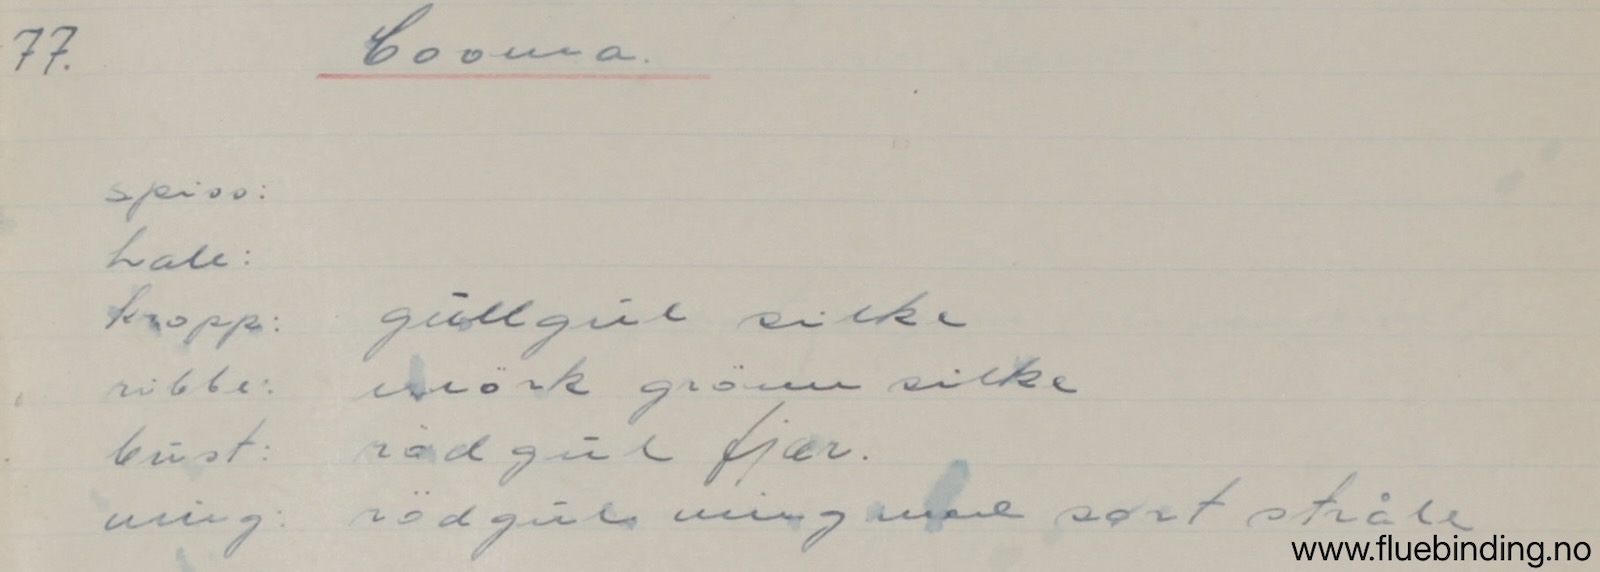 77. Cooma.
spiss:
hale:
kropp: gullgul silke
ribbe: mörk grönn silke
bust: rödgul fjær.
ving: rödgul ving med sort stråle
www.fluebinding.no